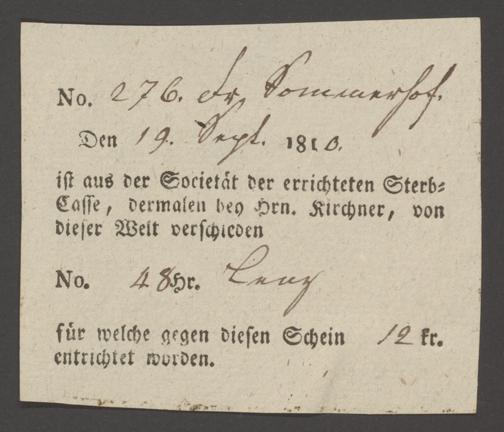 No. 276. Fr. Sommerhof.
Den 19. Sept. 1810.
ist aus der Societät der errichteten Sterb-
Casse, dermalen bey Hrn. Kirchner, von
dieser Welt verschieden
No. 48 Hr. Lenz
für welche gegen diesen Schein 12 kr.
entrichtet worden.